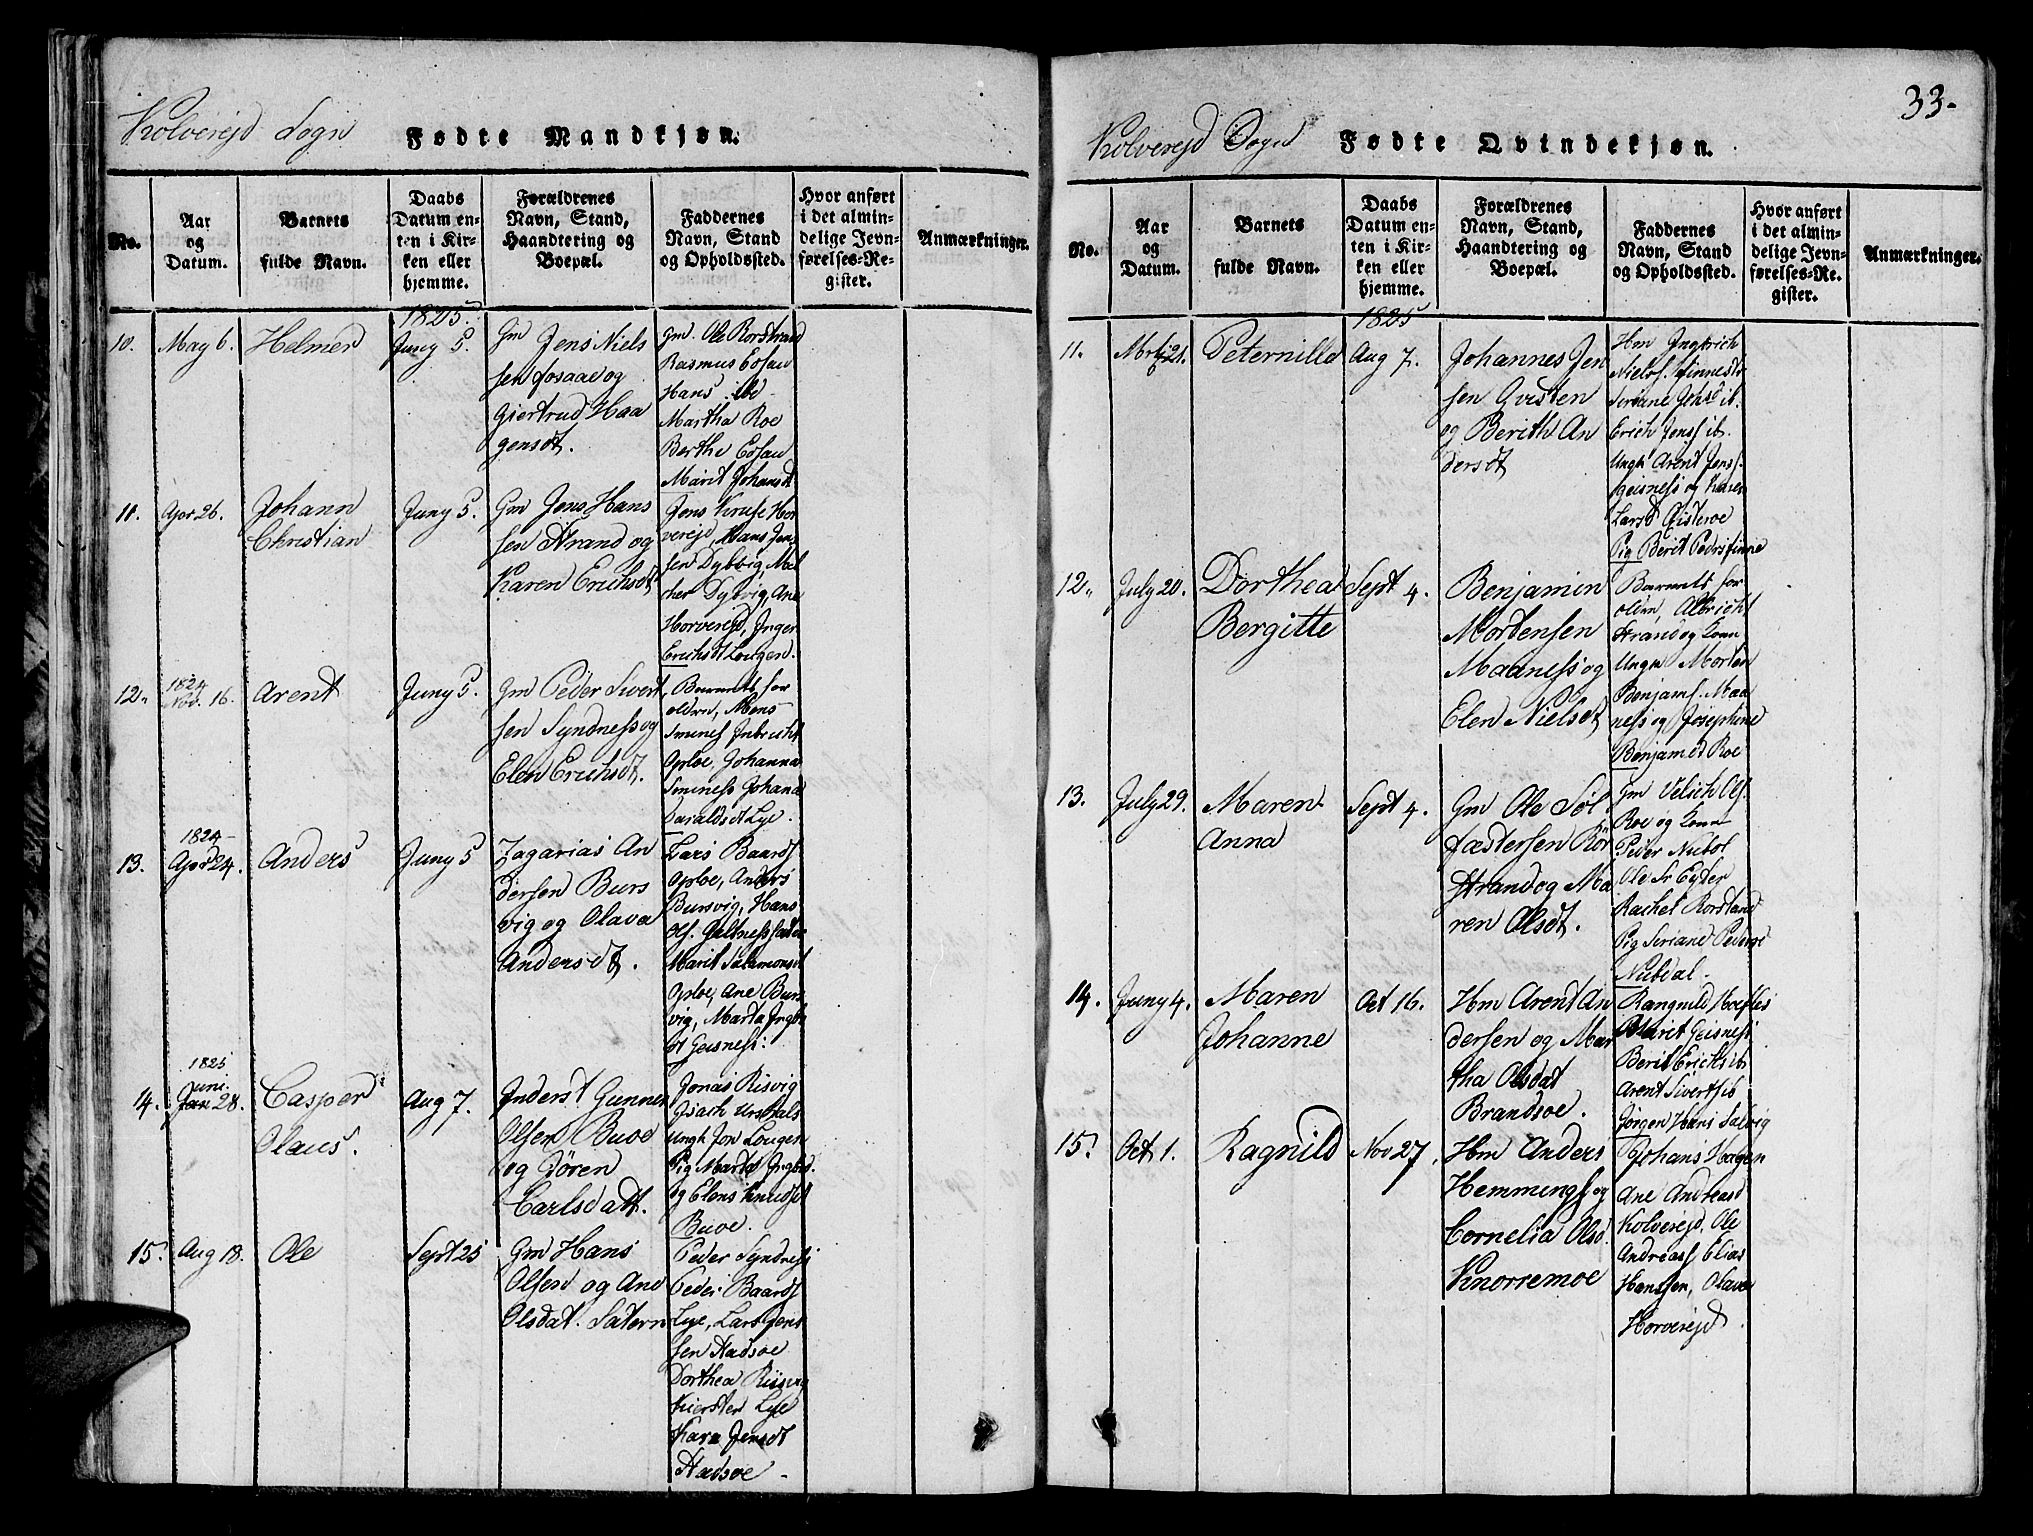 Kolverejd Sogn
Fødte Mandkjøn.
No.
Aar og Datum.
Barnets fulde Navn.
Daabs Datum enten i Kirken eller hjemme.
Forældrenes Navn, Stand, Haandtering og Boepæl.
Faddernes Navn, Stand og Opholdssted.
Hvor anført i det almindelige Jevnførelses-Register.
Anmærkninger.
1825
10.
May 6.
Helmer
Juny 5.
Gm Jens Niels
sen Fosaae og
Giertrud Haa
gensdt.
Gm. Ole Rorstrand
Rasmus Eosau
Hans
Martha Roe
Berthe Eosau
Marit Johansdt
11.
Apr 26.
Johann
Christian
Juny 5.
Gm Jens Hans
sen Strand og
Karen Erichsdt
Jens Kruse Hor
verejd, Hans Jens
sen Dybvig, Mel
cher Dybvig, Ane
Horverejd, Inger
Erichsdt Lougen.
12.
1824
Nov. 16.
Arent
Juny 5.
Gm Peder Sivert
sen Syndness og
Elen Erichsdt.
Barnets for
oldrn, Mons
Smines
Oploe, Johanna
Sminess Johana
Haraldsdt Lye.
13.
1824
Apr 24.
Anders
Juny 5
Zagarias An
dersen Burs
vig og Olava
Andersdt.
Lars Baards
Oploe, Anders
Bursvig, Hans
Ols.
Marit Salamonsdt
Oploe, Ane Burs
vig, Marta Ingeb
dt Geisness:
14.
1825
Juni
Jan 28.
Casper
Olaus.
Aug 7.
Inderst Gunner
Olsen Buoe
og Jören
Carlsdatt.
Jonas Risvig
Isach
Ungk Jon Lougen
Pig Marta Ingbd.
og Elens Knudsdt
Buoe.
15.
Aug 18.
Ole
Sept 25
Gm Hans
Olsen og Ane
Olsdat. Satern
Peder Syndness
Peder Baards
Lye, Lars Jens
sen Hadsoe
Dorthea Riisvig
Kiersten Lye
Kara Jensdt
Hadsoe
33.
Kolverejd Sogn
Fødte Qvindekjøn.
No.
Aar og Datum.
Barnets fulde Navn.
Daabs Datum enten i Kirken eller hjemme.
Forældrenes Navn, Stand, Haandtering og Boepæl.
Faddernes Navn, Stand og Opholdssted.
Hvor anført i det almindelige Jevnførelses-Register.
Anmærkninger.
1825
11.
21.
Peternille
Aug 7.
Johannes Jen
sen Qvisten
og Berith An
dersdt
Hm Ingbrich
Niels. Finnestr
Seriane Johsd ib.
Erich Jens. ib.
Ungk Arent Jens.
Geisness og Karen
Larsd Qisteroe
Pig Berit Pedrs finne
12.
July 20.
Dorthea
Bergitte
Sept 4.
Benjamin
Mortensen
Maaness og
Elen Nielsdt
Barnets for
oldrn, Albricht
Strand og Kone
Ungk Morten
Benjams. Maa
ness og Josephine
Benjamsd Roe
13.
July 29.
Maren
Anna
Sept 4.
Gm Ole Söl
fæstersen Rör
strand og Ma
ren Olsdt.
Gm Velich Ols.
Roe og Kone
Peder Nubol
Ole Sr Eyder
Rachel Rorstand
Pig Seriane Pedersd
Nubdal
14.
Juny 4.
Maren
Johanne
Oct 16.
Hm Arent An
dersen og Mar
tha Olsdat
Brandsoe.
Rangnild Hofles
Marit Geisness
Berit Erichs ib
Arent Sivert ib
Jörgen Hans Salvig
15.
Oct 1.
Ragnild
Nov 27.
Hm Anders
Hemmings og
Cornelia Olsd.
Knorremoe
Johans Haagen
Ane Andreasd
Kolverejd. Ole
Andreass. Elias
Hanssen, Olava
Horverejd